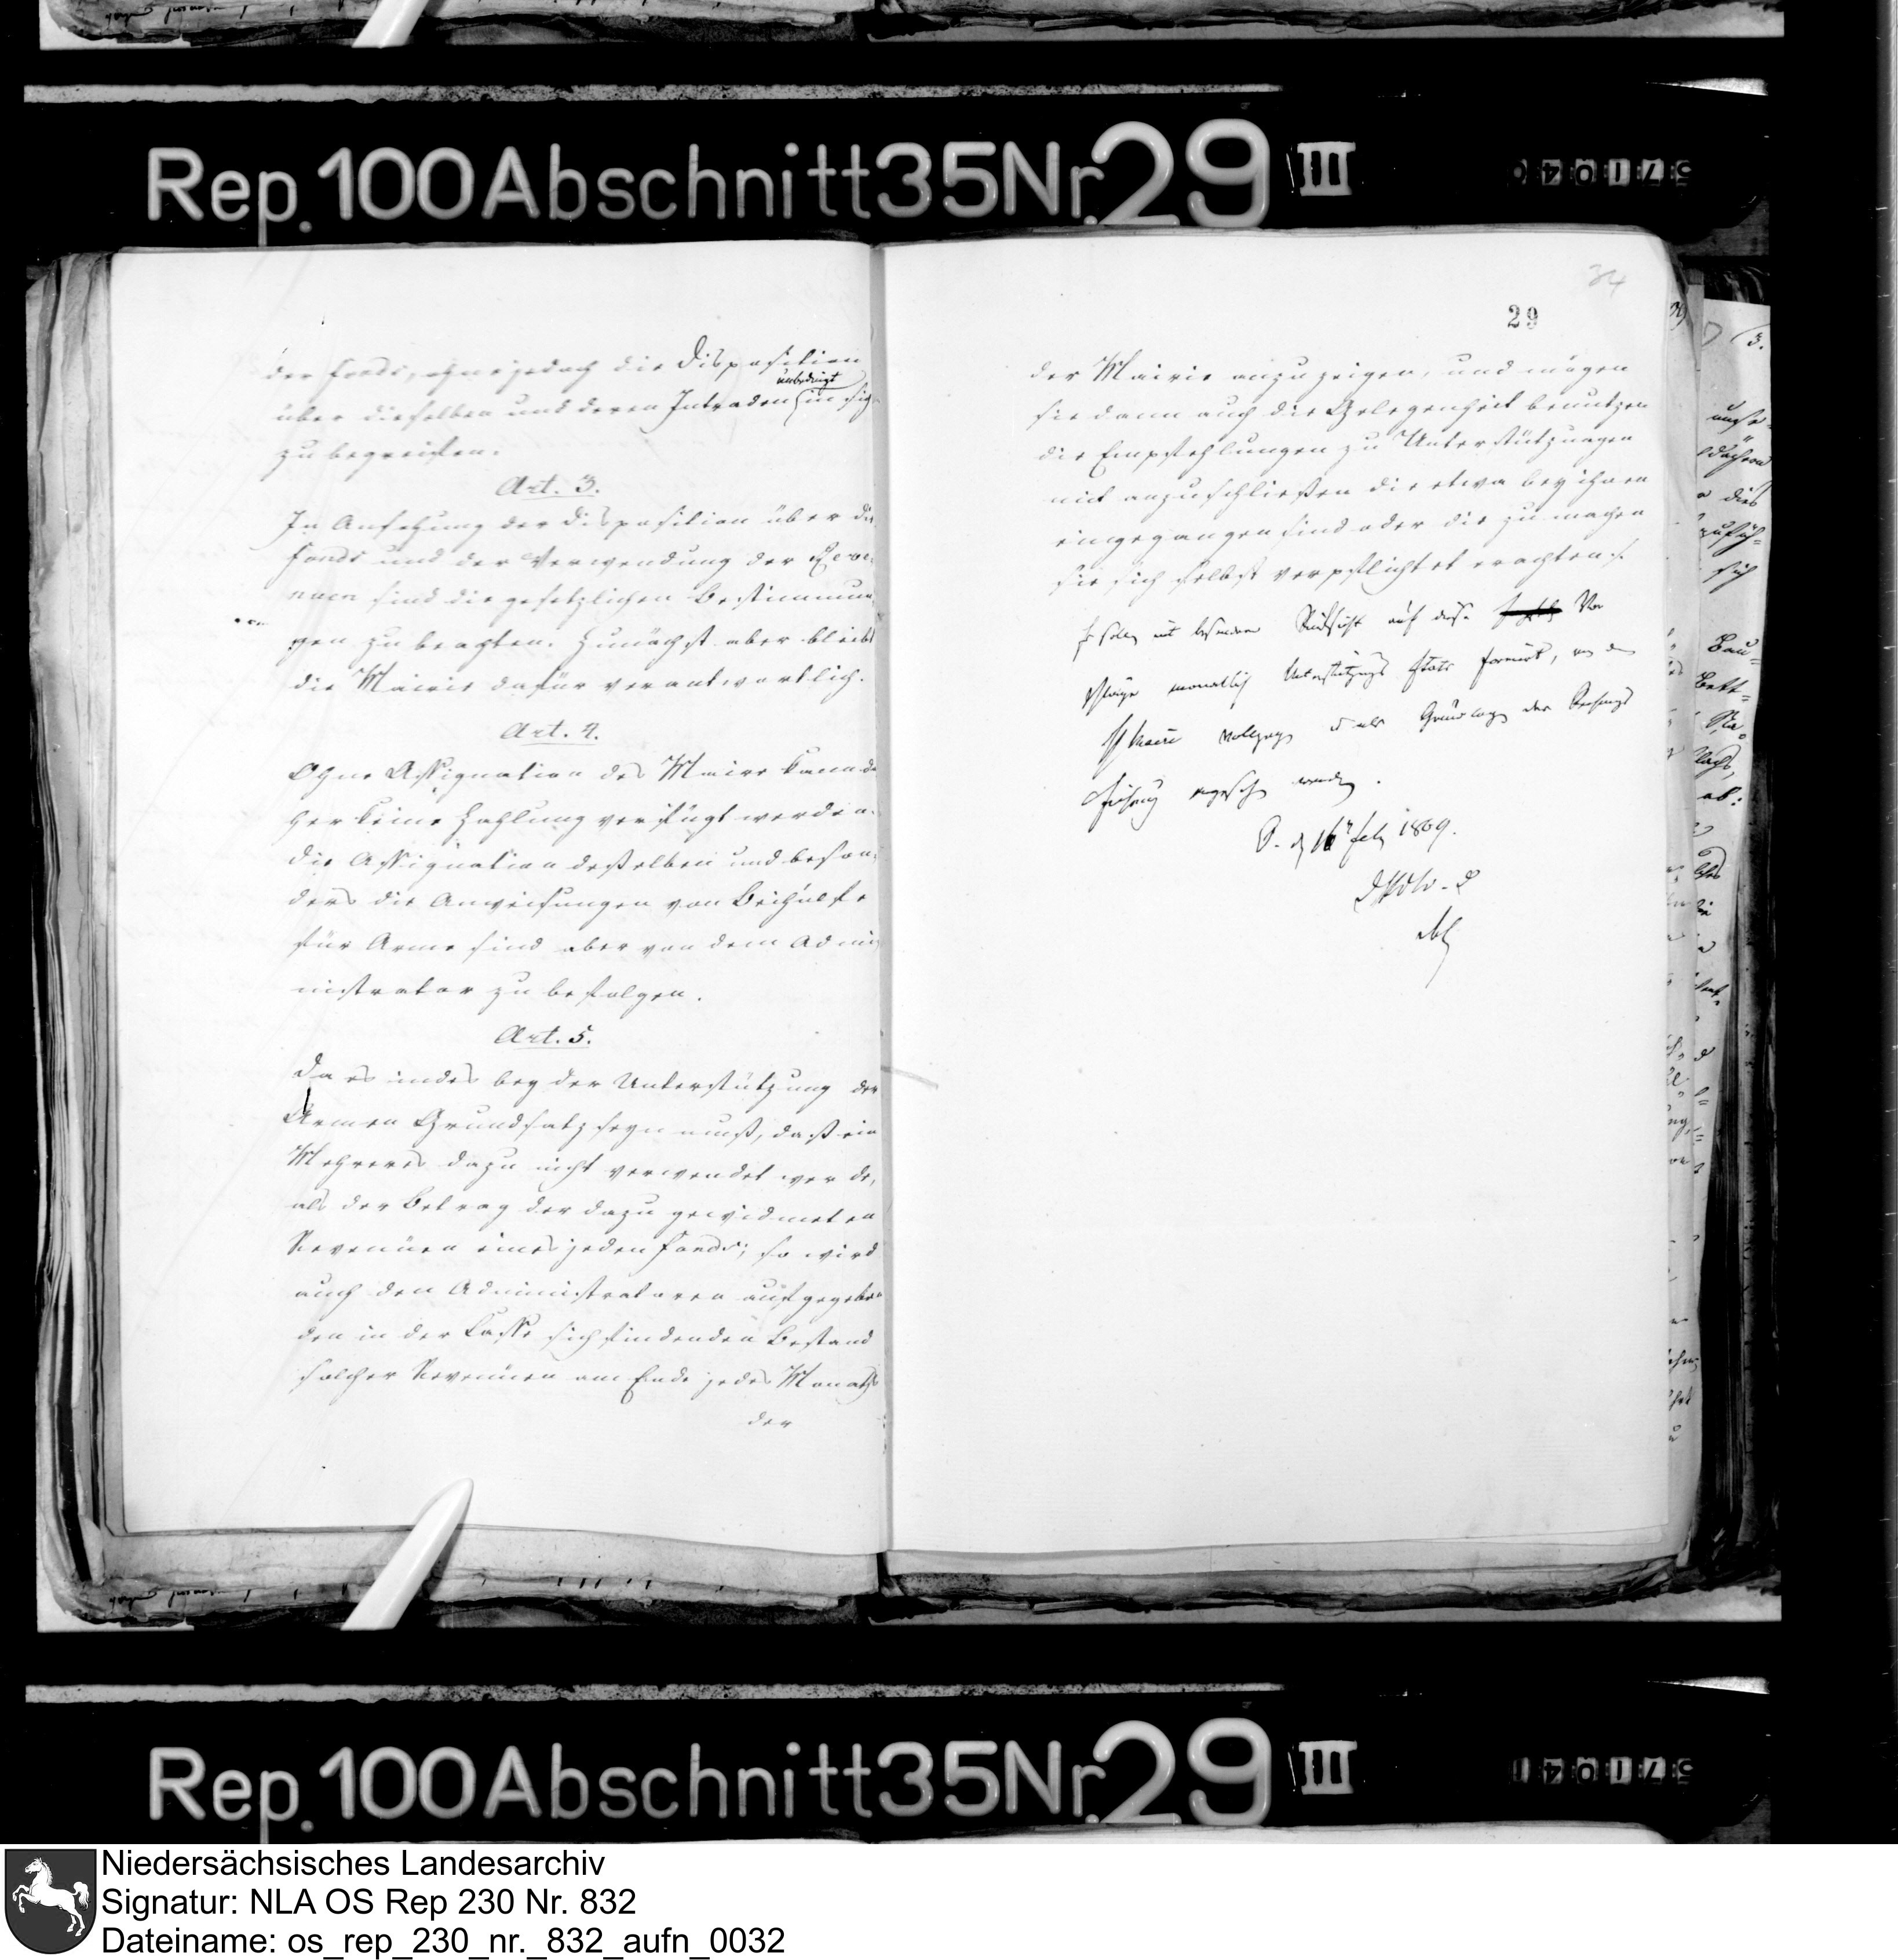 Rep. 100 Abschnitt 35 Nr. 29 III
der Fonds, ohne jedoch die Disposition
über dieselben und deren Intraden unbedingt in sich
zu begreifen.
Art. 3.
In Ansehung der Disposition über die
Fonds und der Verwendung der Reve-
nuen sind die gesetzlichen Bestimmun-
gen zu beachten. Zunächst aber bleibt
die Mairie dafür verantwortlich.
Art. 4.
Ohne Assignation des Maire kann da
her keine Zahlung verfügt werden.
Die Assignation desselben und beson-
ders die Anweisungen von Beihülfe
für Arme sind aber von dem Admi-
nistrator zu befolgen.
Art. 5.
Da es indes bey der Unterstützung der
Armen Grundsatz seyn muß, daß ein
Mehreres dazu nicht verwendet werde,
als der Betrag der dazu gewidmeten
Revenüen eines jeden Fonds; so wird
auch den Administratoren aufgegeben
den in der Casse sich findenden Bestand
solcher Revenüen am Ende jedes Monaths
der
34
29
der Mairie anzuzeigen, und mögen
sie dann auch die Gelegenheit benutzen
die Empfehlungen zu Unterstützungen
mit anzuschließen die etwa bey ihnen
eingegangen sind oder die zu machen
sie sich selbst verpflichtet erachten.
Es sollen mit besonderer Rücksicht auf diese Vor
schläge monatlich Unterstützungs Etats formirt, von dem
H Maire vollzogen u als Grundlage der Rechnungs
führung angesehen werden.
O. d 16 Feb 1809.
Rep. 100 Abschnitt 35 Nr. 29 III
Niedersächsisches Landesarchiv
Signatur: NLA OS Rep 230 Nr. 832
Dateiname: os_rep_230_nr._832_aufn_0032